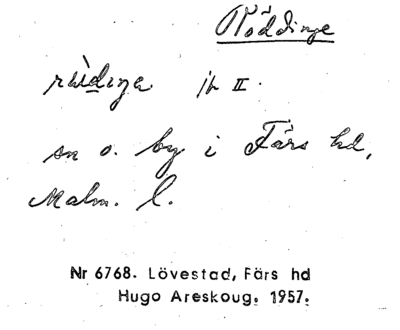 Röddinge
rö̀dinga ɲ II.
sn o. by i Färs hd,
Malm. l.
Nr 6768. Lövestad, Färs hd
Hugo Areskoug. 1957.